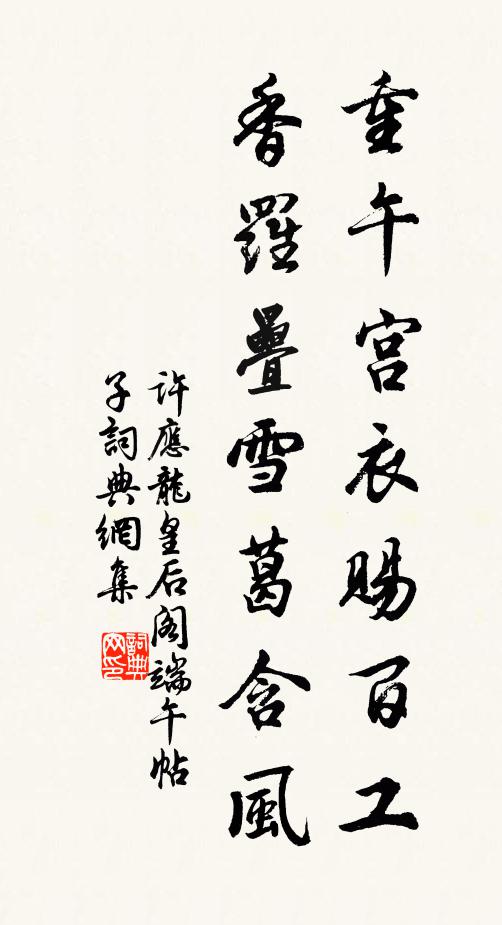 重午宮衣賜百工
香羅疊雪葛含風
許應龍皇后阁端午帖
子詞典網集
詞典网印